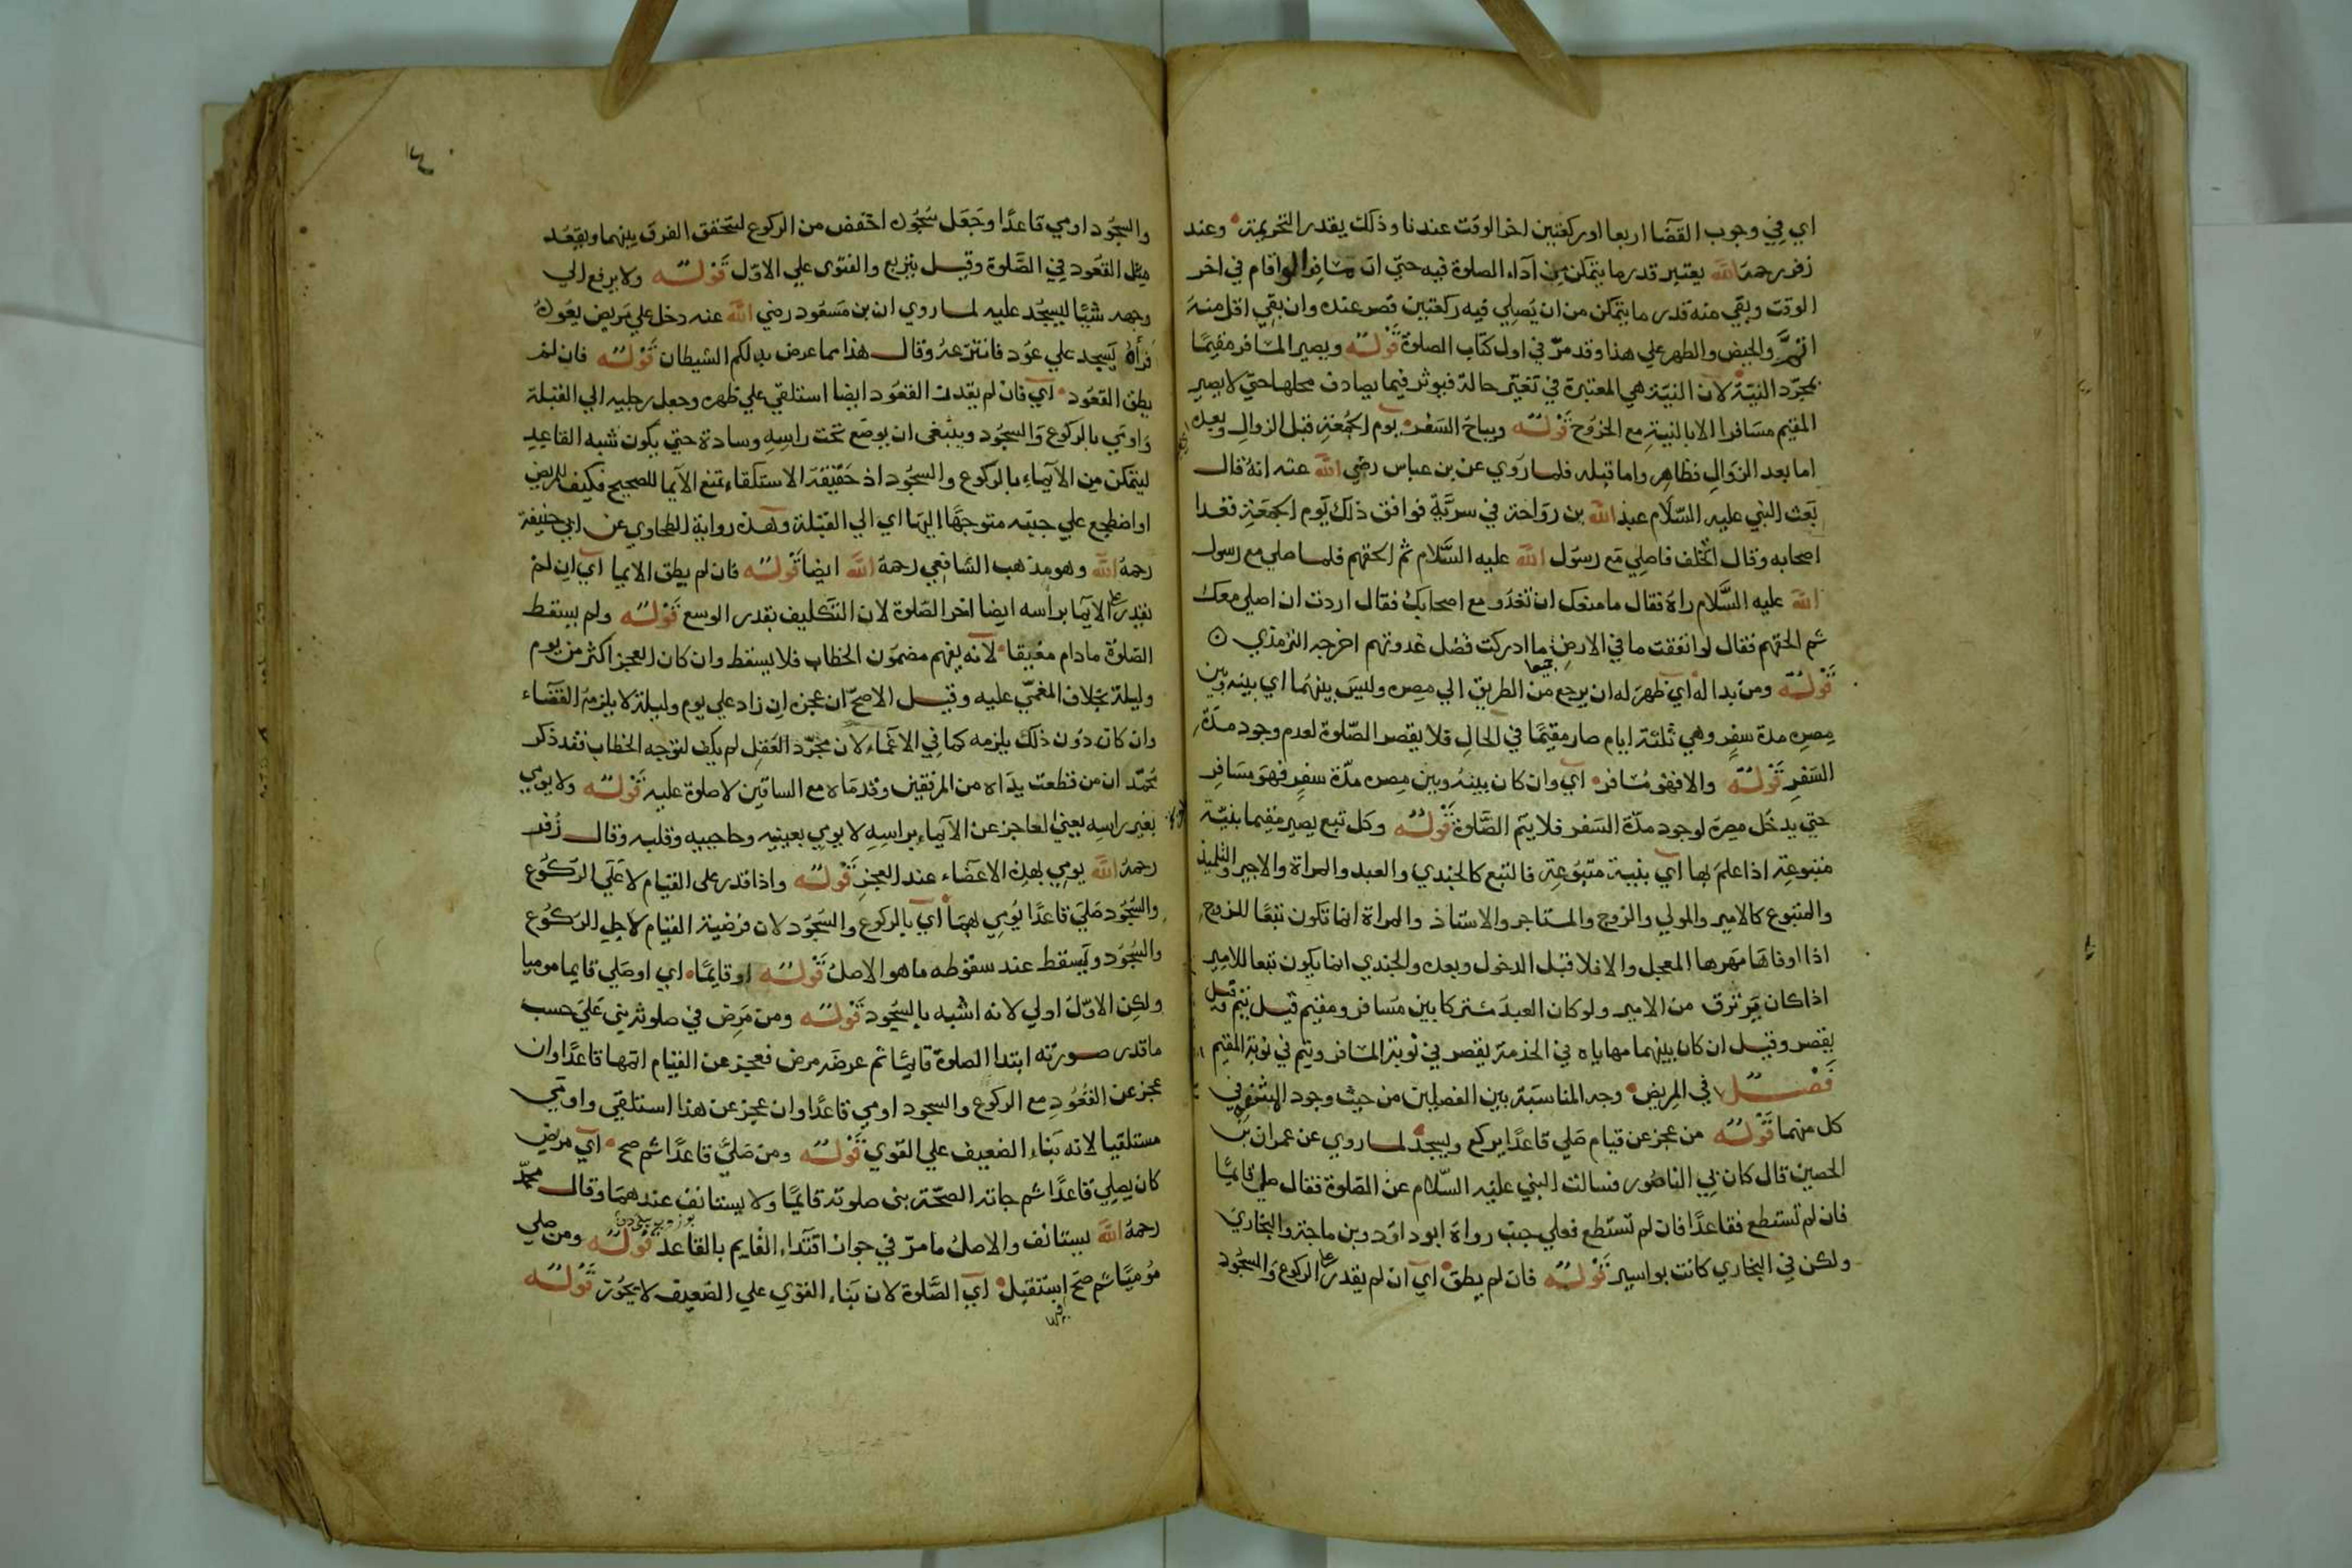 اي في وجوب القضا اربعا اوركعتين اخر الوقت عندنا وذلك يقدر التحريمة وعند
زفر رحمه الله يعتبر قدر ما يتمكن من اداء الصلوة فيه حتي ان مسافرا لو اقام في اخر
الوقت وبقي منه قدر ما يتمكن من ان يصلي فيه ركعتين قصر عنده وان بقي اقل منه
اتم والحيض والطهر علي هذا وقد مر في اول كتاب الصلوة قوله ويصير المسافر مقيما
بمجرد النية لان النية هي المعتبرة في تغير حالة فيوثر فيما يصادف محلها حتي لا يصير
المقيم مسافرا الا بالنية مع الخروج قوله ويباح السفر يوم الجمعة قبل الزوال وبعده
اما بعد الزوال فظاهر واما قبله فلما روي عن بن عباس رضي الله عنه انه قال
بعث النبي عليه السلام عبد الله بن رواحة في سرية فوافق ذلك يوم الجمعة فغدا
اصحابه وقال اتخلف فاصلي مع رسول الله عليه السلام ثم الحقهم فلما صلي مع رسول
الله عليه السلام راه فقال ما منعك ان تغدو مع اصحابك فقال اردت ان اصلي معك
ثم الحقهم فقال لو انفقت ما في الارض جميعا ما ادركت فضل غدوتهم اخرجه الترمذي
قوله ومن بدا له اي ظهر له ان يرجع من الطريق الي مصره وليس بينهما اي بينه وبين
مصره مدة سفر وهي ثلثة ايام صار مقيما في الحال فلا يقصر الصلوة لعدم وجود مدة
السفر قوله والا فهو مسافر اي وان كان بينه وبين مصره مدة سفر فهو مسافر
حتي يدخل مصره لوجود مدة السفر فلا يتم الصلوة قوله وكل تبع يصير مقيما بنية
متبوعه اذا علم بها اي بنية متبوعه فالتبع كالجندي والعبد والمراة والاجير والتلميذ
والمتبوع كالامير والمولي والزوج والمستاجر والاستاذ والمراة انما تكون تبعا للزوج
اذا اوفاها مهرها المعجل والا فلا قبل الدخول وبعده والجندي انما يكون تبعا للامير
اذا كان يرتزق من الامير ولو كان العبد مشتركا بين مسافر ومقيم قيل يتم وقيل
يقصر وقيل ان كان بينهما مهاياه في الخدمة يقصر في نوبة المسافر ويتم في نوبة المقيم
فصل في المريض وجه المناسبة بين الفصلين من حيث وجود المشقة في
كل منهما قوله من عجز عن قيام صلي قاعدا يركع ويسجد لما روي عن عمران بن
الحصين قال كان بي الناصور فسالت النبي عليه السلام عن الصلوة فقال صلي قايما
فان لم تستطع فقاعدا فان لم تستطع فعلي جنب رواه ابو داود وبن ماجة والبخاري
ولكن في البخاري كانت بواسير قوله فان لم يطق اي ان لم يقدر علي الركوع والسجود
والسجود اومي قاعدا وجعل سجوده اخفض من الركوع ليتحقق الفرق بينهما ويقعد
مثل القعود في الصلوة وقيل يتربع والفتوي علي الاول قوله ولا يرفع الي
وجهه شيئا ليسجد عليه لما روي ان بن مسعود رضي الله عنه دخل علي مريض يعوده
فراه يسجد علي عود فانتزعه وقال هذا مما عرض به لكم الشيطان قوله فان لم
يطق القعود اي فان لم يقدر القعود ايضا استلقي علي ظهره وجعل رجليه الي القبلة
واومي بالركوع والسجود وينبغي ان يوضع تحت راسه وسادة حتي يكون شبه القاعد
ليتمكن من الايماء بالركوع والسجود اذ حقيقة الاستلقاء تمنع الايما للصحيح فكيف للمريض
او اضطجع علي جنبه متوجها اليها اي الي القبلة وهذه رواية الطحاوي عن ابي حنيفة
رحمه الله وهو مذهب الشافعي رحمه الله ايضا قوله فان لم يطق الايما اي ان لم
يقدر علي الايما براسه ايضا اخر الصلوة لان التكليف بقدر الوسع قوله ولم يسقط
الصلوة ما دام مفيقا لانه يفهم مضمون الخطاب فلا يسقط وان كان العجز اكثر من يوم
وليلة بخلاف المغمي عليه وقيل الاصح ان عجزه ان زاد علي يوم وليلة لا يلزمه القضاء
وان كان دون ذلك يلزمه كما في الاغماء لان مجرد العقل لم يكف لتوجه الخطاب فقد ذكر
محمد ان من قطعت يداه من المرفقين وقدماه مع الساقين لا صلوة عليه قوله ولا يومي
بغير راسه يعني العاجز عن الايماء براسه لا يومي بعينيه وحاجبيه وقلبه وقال زفر
رحمه الله يومي بهذه الاعضاء عند العجز قوله واذا قدر علي القيام لا علي الركوع
والسجود صلي قاعدا يومي بهما اي بالركوع والسجود لان فرضية القيام لاجل الركوع
والسجود ويسقط عند سقوطه ما هو الاصل قوله او قايما اي او صلي قايما موميا
ولكن الاول اولي لانه اشبه بالسجود قوله ومن مرض في صلوته بني علي حسب
ما قدر صورته ابتدا الصلوة قايما ثم عرضه مرض فعجز عن القيام اتمها قاعدا وان
عجز عن القعود مع الركوع والسجود اومي قاعدا وان عجز عن هذا استلقي واومي
مستلقيا لانه بناء الضعيف علي القوي قوله ومن صلي قاعدا ثم صح اي مريض
كان يصلي قاعدا ثم جاته الصحة بني صلوته قايما ولا يستانف عندهما وقال محمد
رحمه الله يستانف والاصل ما مر في جواز اقتداء القايم بالقاعد قوله ومن صلي
موميا ثم صح استقبل اي الصلوة لان بناء القوي علي الضعيف لا يجوز قوله